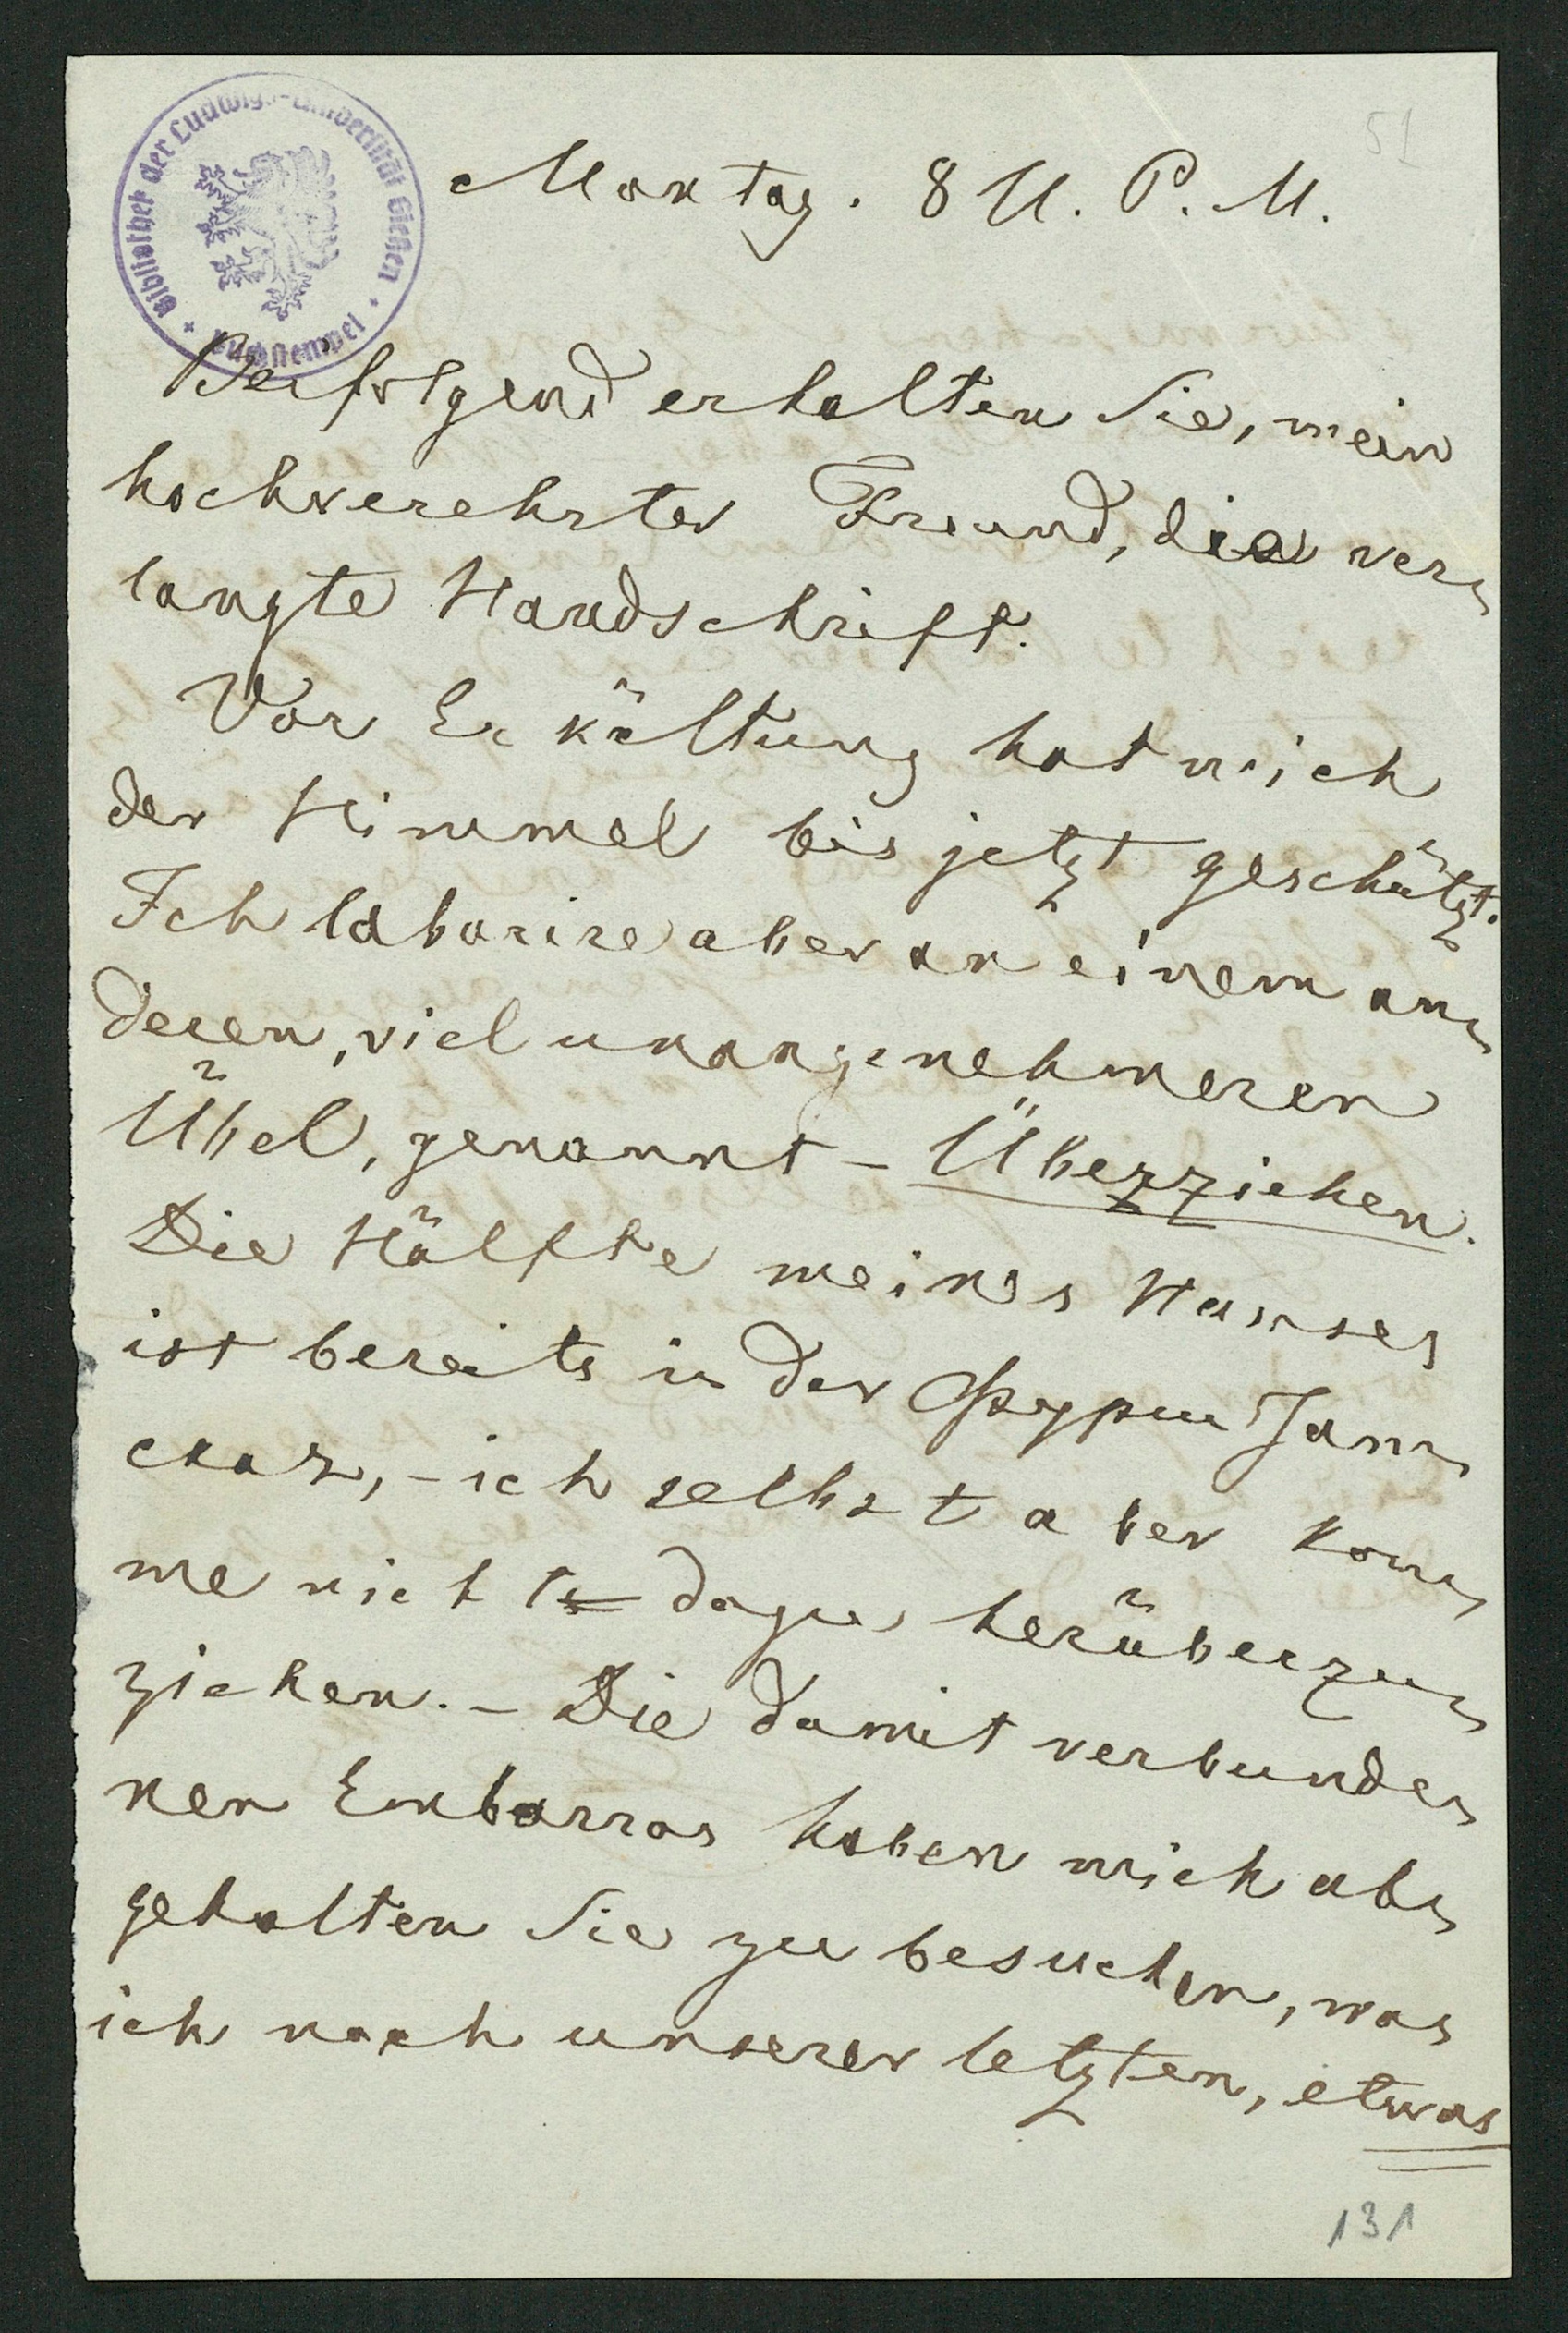 51
Bibliothek der Ludwigs-Universität Gießen
Montag. 8 U. P. M.
Beifolgend erhalten Sie, mein
hochverehrter Freund, die ver-
langte Handschrift.
Vor Erkältung hat mich
der Himmel bis jetzt geschützt.
Ich laborire aber an einem an-
deren, viel unangenehmeren
Übel, genannt – Überziehen.
Die Hälfte meines Hauses
ist bereits in der
– ich selbst aber kom-
me nicht dazu herüberzu-
ziehen. – Die damit verbunde-
nen Embarras haben mich ab-
gehalten Sie zu besuchen, was
ich nach unserer letzten, etwas
131